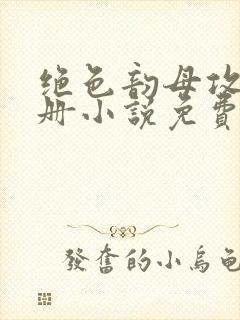 绝色韵母攻
册小说免費
發奮的小烏龜